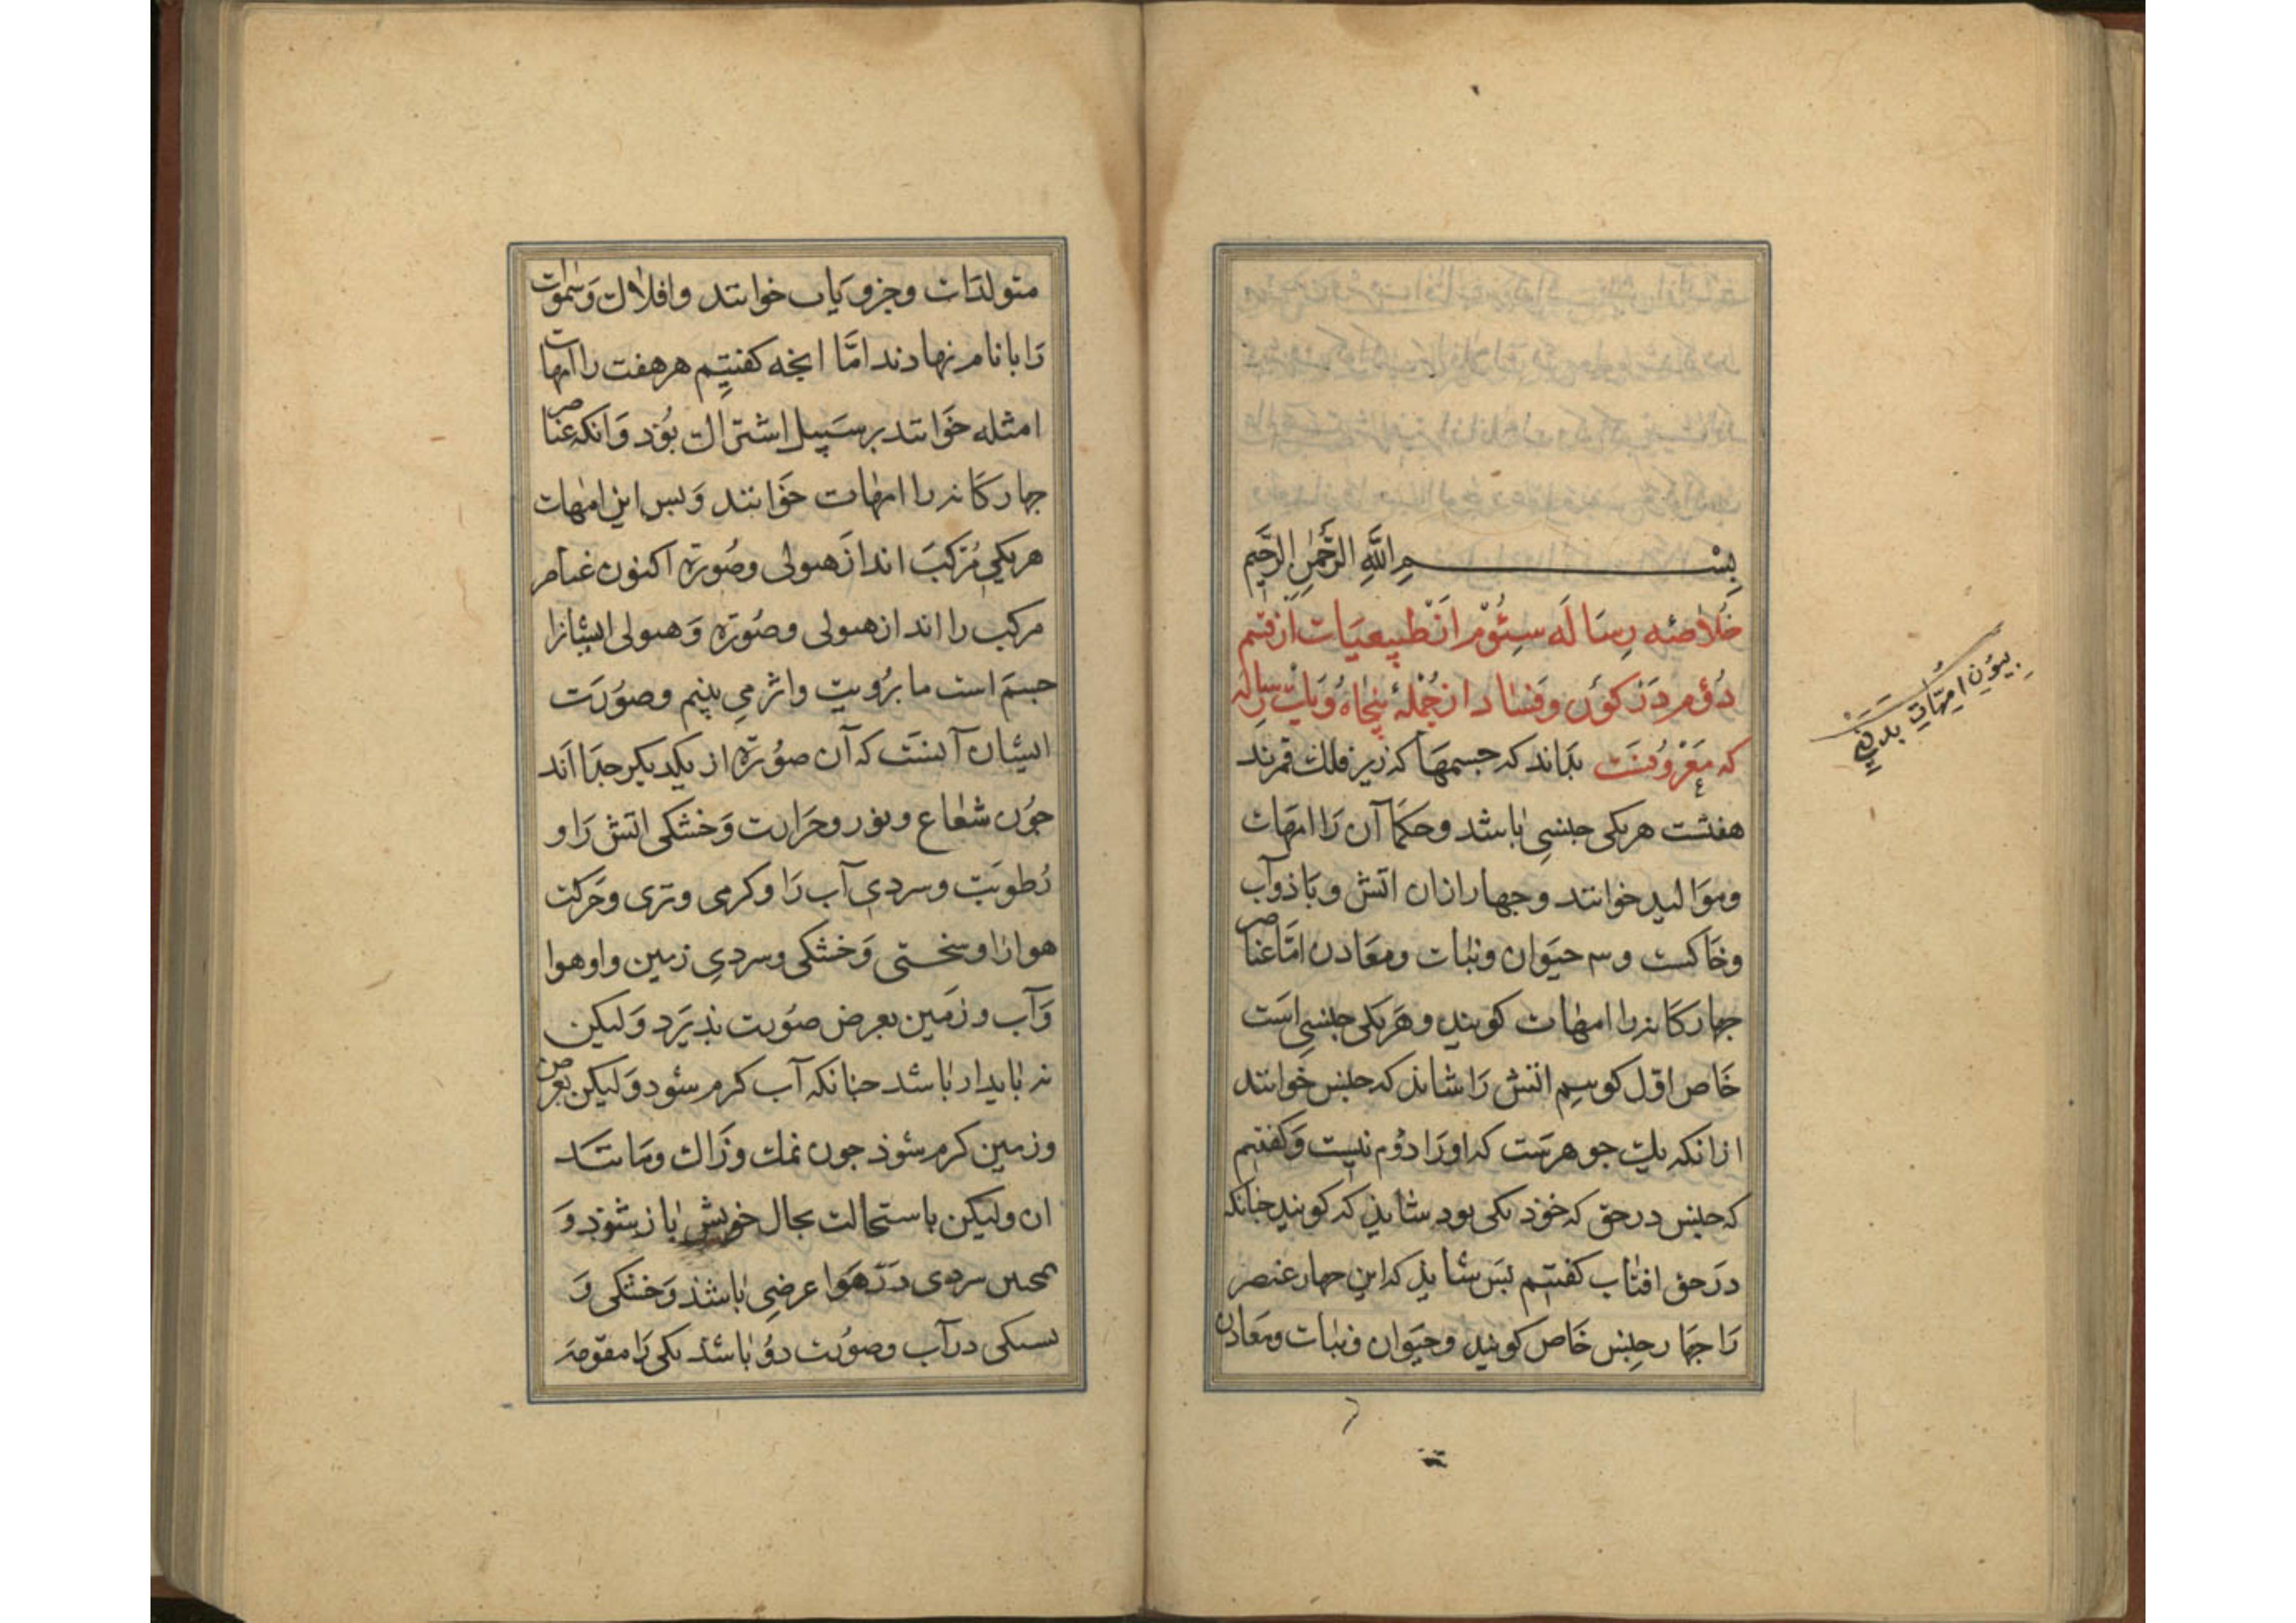 بِسْــــــمِ اللَّهِ الرَّحْمٰنِ الرَّحِيمِ
خُلاصَهٔ رِسَالَه سِئُوْم از طَبِیعیَات از قسم
دُوُم دَرْ کَوْن وَفسَاد از جُمْلَهٔ پنجاهُ وَیك رسَاله
که مَعْرُوفسَت بدَاند که جسمهَا که زیر فلك قمرند
هفتست هریکی جنسی باشد وحکمَا آن رَا امهَات
وموَالید خوانند وجهار ازان اتش وبَاذ وآب
وخَاکست وسه حیَوان ونبات ومعَادن امَّا عناصر
جهارکَانه را امهات کویند وهَریکی جنسی است
خَاص اوّل کوییم اتش رَا شاید که جنس خوانند
ازانکه یك جوهرست که اورَا دوُم نیست وَکفتیم
که جنس درحق که خوذ یکی بود شاید که کویند جنانکه
دَرحق افتاب کفتیم بَس شاید که این جهار عنصر
رَا جهَار جنس خَاص کویند وحیَوان ونبات ومعَادن
متولدَات وجزویَات خوانند وافلاك وَسَموٰت
رَا بانام نهادند امَّا انجه کفتیم هرهفت را امهات
امثله خَوانند برسَبیل اشتراك بوُد وَانکه عناصر
جهارکَانه را امهات خَوانند وَبس این امهات
هریکی مُرکبَ اند ازَ هیولی وصُورة اکنون عناصر
مرکب را اند از هیولی وصُورة وَهیولی ایشانرا
جسمَ است ما برُویت واثر می بینم وصوُرَت
ایشان آنسَت که آن صوُرة از یکدیکر جدَا اَند
جوُن شعاع ونور وحَرَارت وَخشکی اتش رَا و
رُطوبَت وسردی آب رَا وکرمی وتری وحَرکت
هوارَا وسختی وَخشکی وسردیِ زمین واو هوا
وَآب وزَمین بعرض صوُرت بذیرَد وَلیکن
نه باید ار باشد جنانکه آب کرم شود وَلیکن بعرض
وزمین کرم شوذ جون نمك وزَاك ومَانند
ان ولیکن باستحالت بحال خویش باز شوذ وَ
همجنین سردی دَرْ هَوا عرضی باشذ وَخشکی وَ
سبکی درآب وصوُرت دوُ باشذ یکی رَا مقومَه